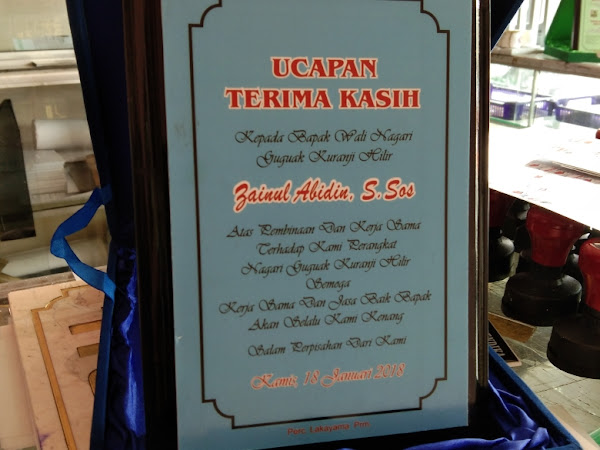 UCAPAN
TERIMA KASIH
Kepada Bapak Wali Nagari
Guguak Kuranji Hilir
Zainul Abidin, S.Sos
Atas Pembinaan Dan Kerja Sama
Terhadap Kami Perangkat
Nagari Guguak Kuranji Hilir
Semoga
Kerja Sama Dan Jasa Baik Bapak
Akan Selalu Kami Kenang
Salam Perpisahan Dari Kami
Kamis, 18 Januari 2018